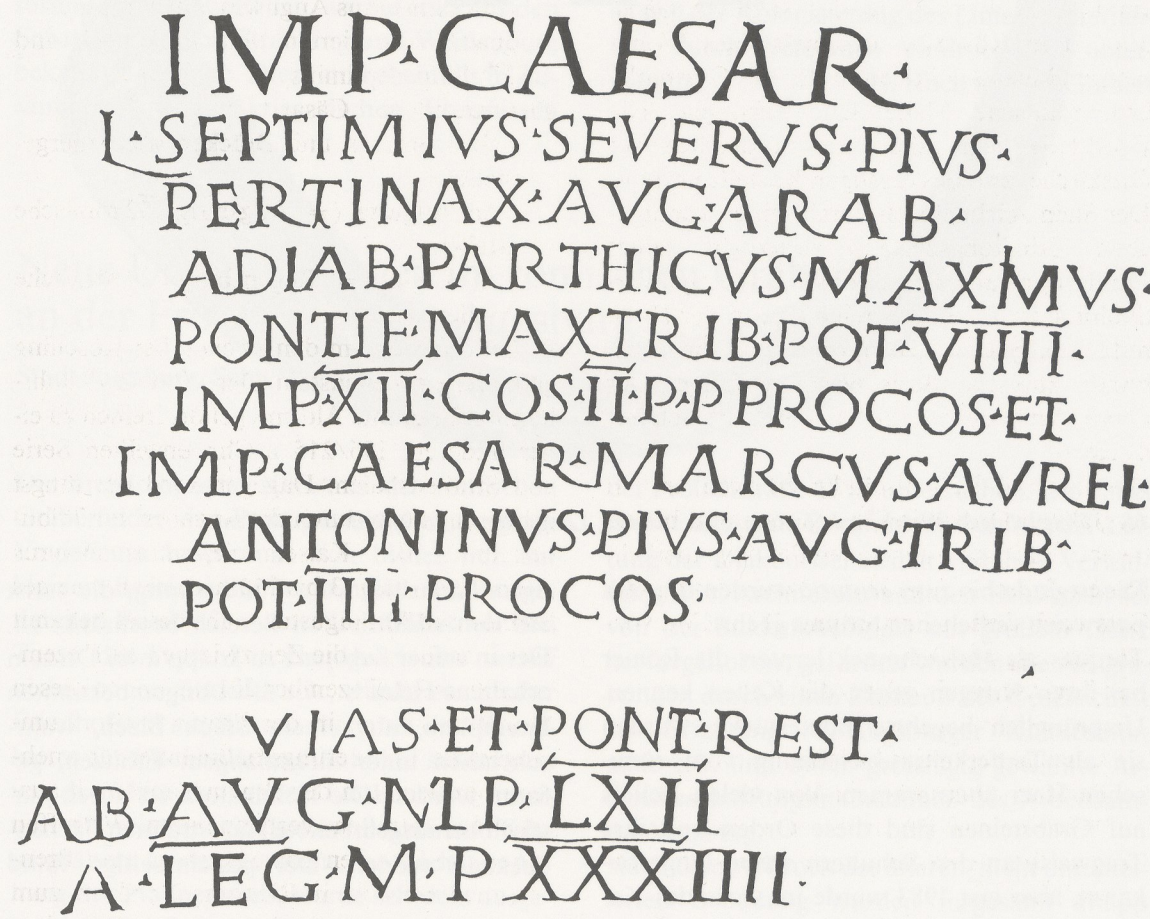 IMP·CAESAR·
L·SEPTIMIVS·SEVERVS·PIVS·
PERTINAX·AVG·ARAB·
ADIAB·PARTHICVS·MAXMVS·
PONTIF·MAX·TRIB·POT·VIIII
IMP·XI·COS·II·P·P·PROCOS·ET·
IMP·CAESAR·MARCVS·AVREL·
ANTONINVS·PIVS·AVG·TRIB·
POT·IIII·PROCOS·
VIAS ET PONT·REST·
AB·AVG·M·P·LXII
A·LEG·M·P·XXXIIII